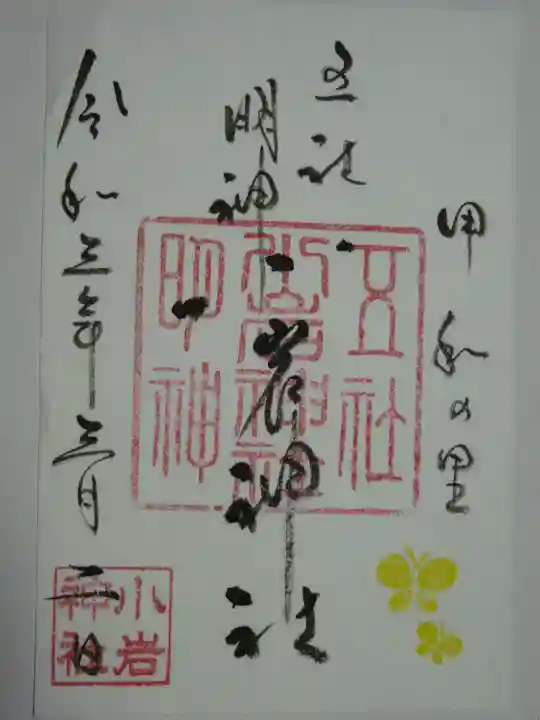 甲和の里
五社
明神
小岩神社
令和三年三月二日
五社
小岩神社
明神
小岩
神社